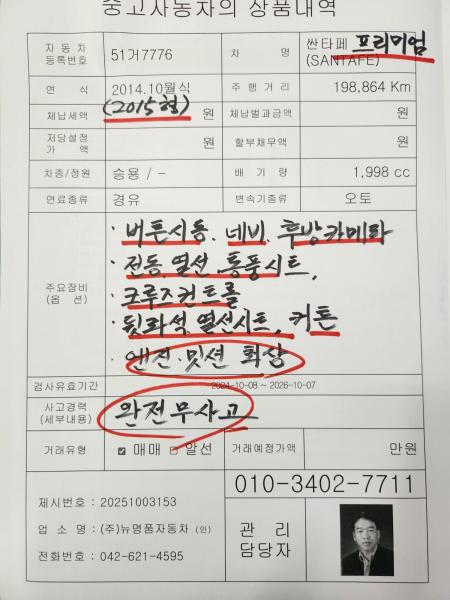 중고자동차의 상품내역
자 동 차 등록번호 51거7776 차 명 싼타페 프리미엄 (SANTAFE)
연 식 2014.10월식 (2015형) 주 행 거 리 198,864 Km
체납세액 원 체납벌과금액 원
저당설정 가 액 원 할부채무액 원
차종/정원 승용 / - 배 기 량 1,998 cc
연료종류 경유 변속기종류 오토
주요장비 (옵 션)
· 버튼시동. 네비. 후방카메라
· 전동.열선.통풍시트.
· 크루즈컨트롤
· 뒷좌석.열선시트. 커튼
· 엔진.밋션 화상
검사유효기간 2024-10-08 ~ 2026-10-07
사고경력 (세부내용) 완전무사고
거래유형 매매 알선 거래예정가액 만원
010-3402-7711
제시번호 : 20251003153
업 소 명 : (주)뉴명품자동차 (인)
전화번호 : 042-621-4595
관 리
담당자